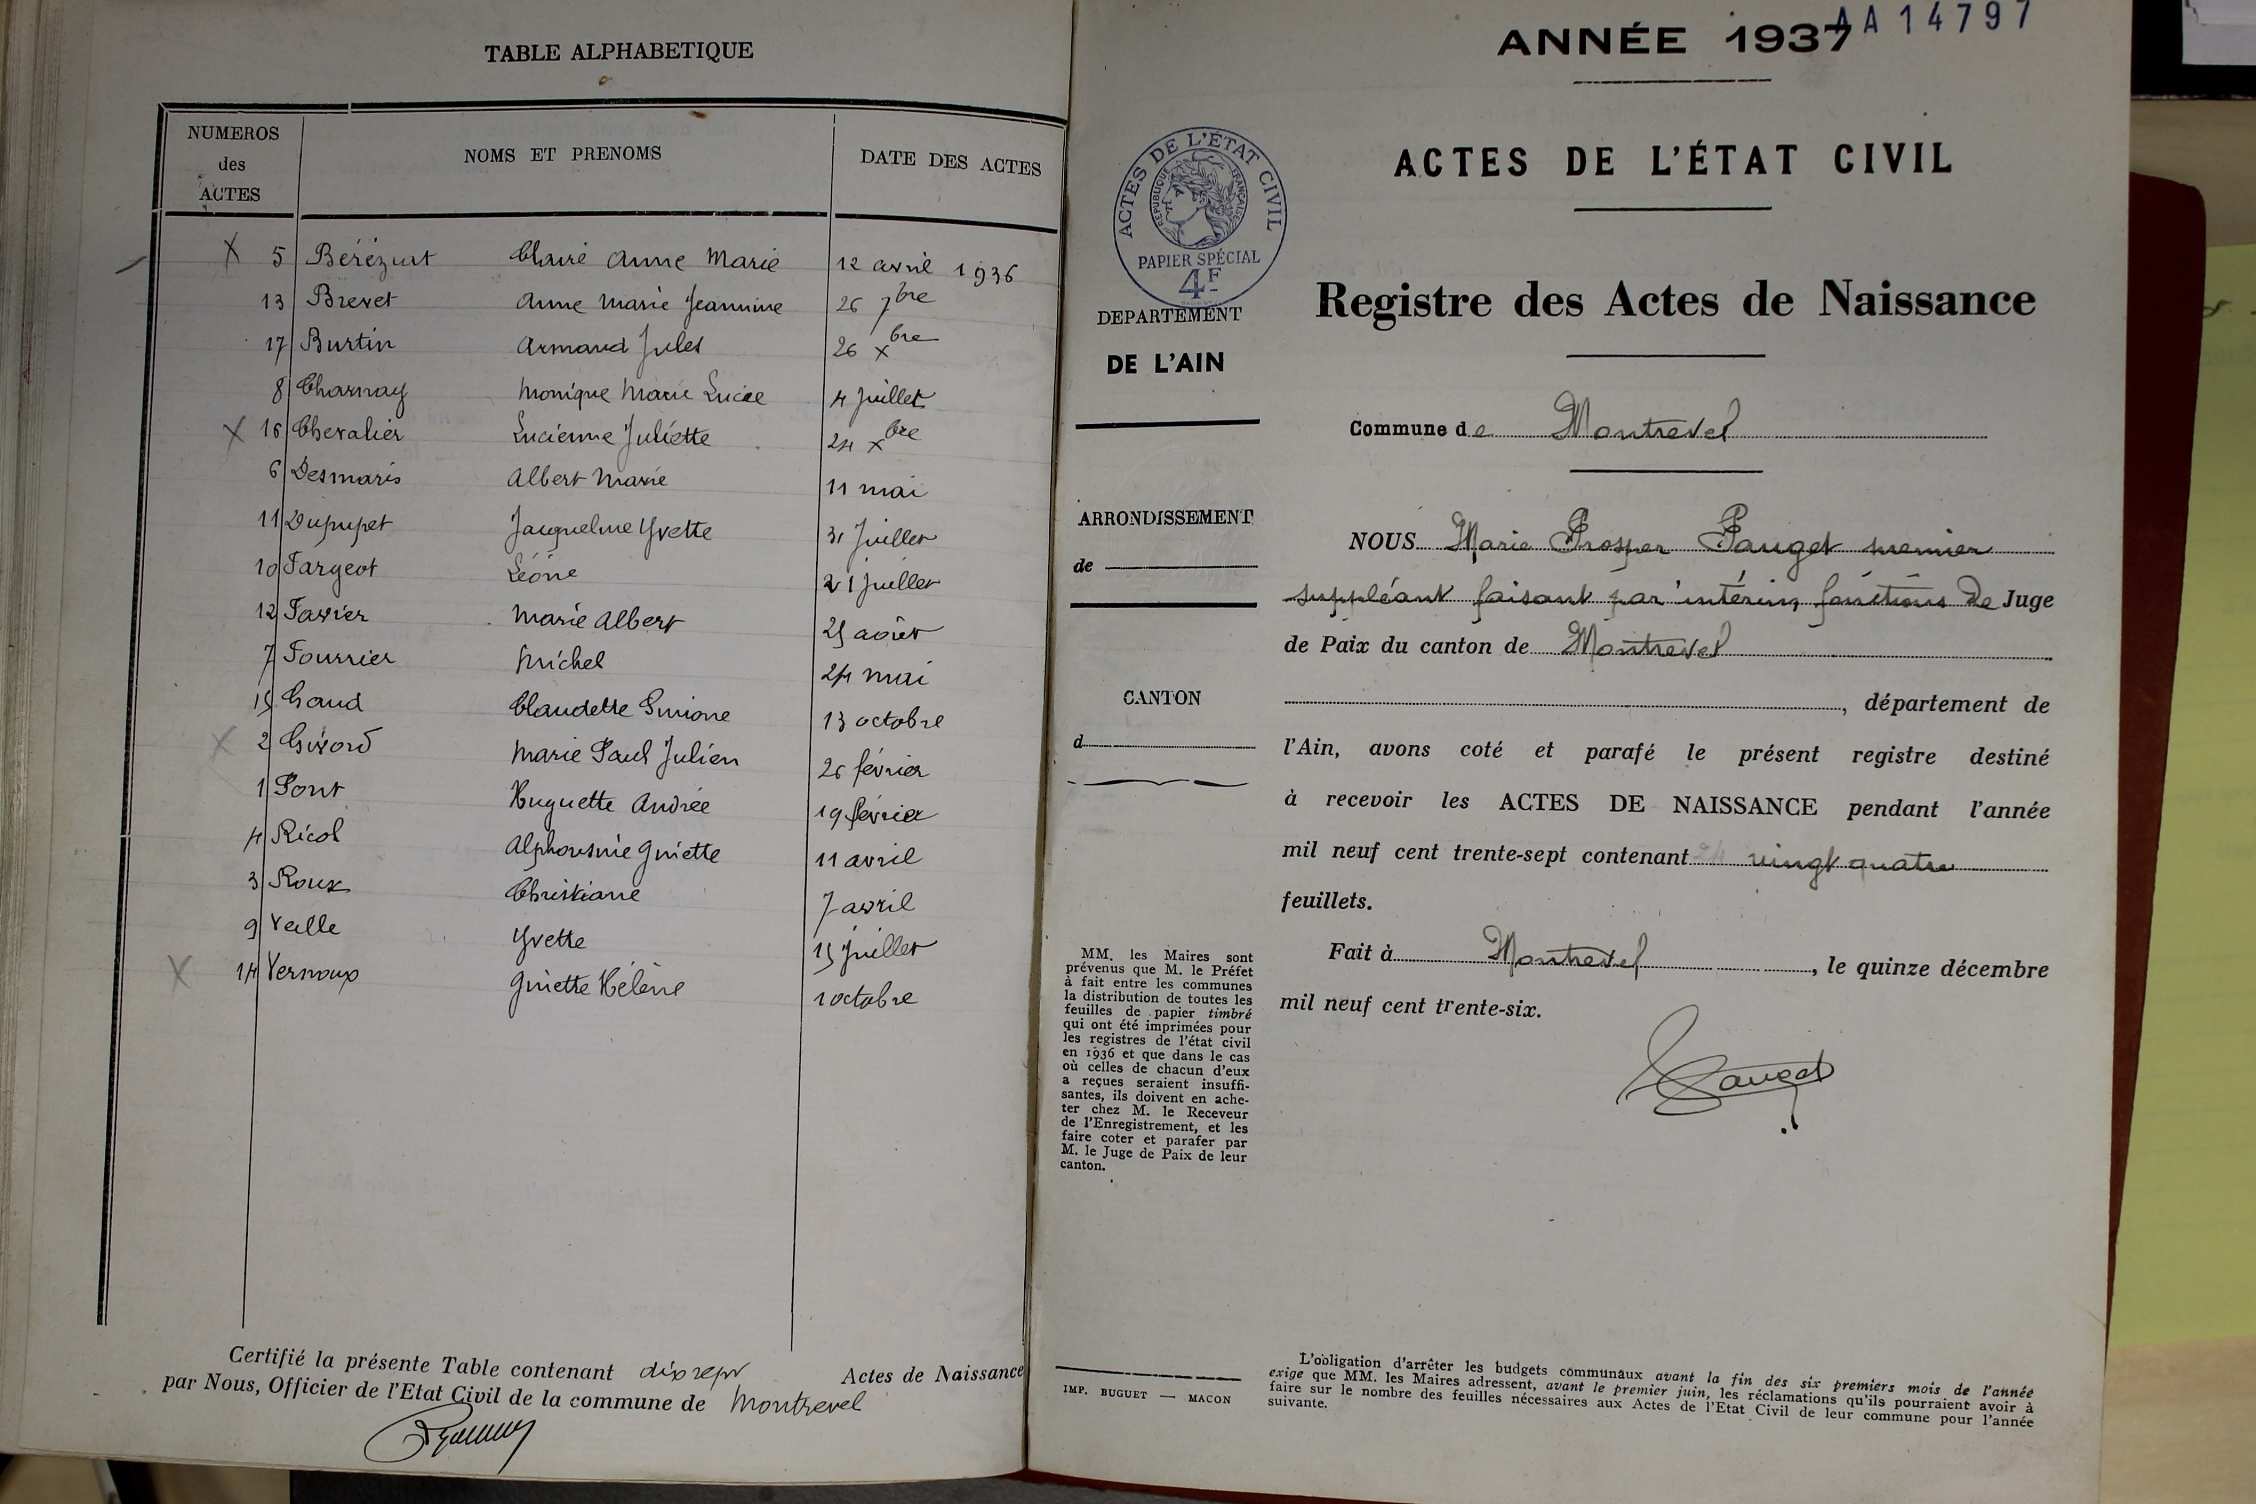 TABLE ALPHABETIQUE
NUMEROS
des
ACTES
NOMS ET PRENOMS
DATE DES ACTES
X 5 Bérézuit Claire Anne Marie 12 avril 1936
13 Brevet Anne Marie Jeannine 26 7bre
17 Burtin Armand Jules 26 xbre
8 Charnay Monique Marie Lucie 4 Juillet
X 16 Chevalier Lucienne Juliette 24 xbre
6 Desmaris Albert Marie 11 mai
11 Dupupet Jacqueline Yvette 31 Juillet
10 Fargeot Léone 21 juillet
12 Favier Marie Albert 25 août
7 Fourrier Michel 24 mai
15 Gaud Claudette Simone 13 octobre
X 2 Girord Marie Paul Julien 26 février
1 Pont Huguette Andrée 19 février
4 Ricol Alphonsine Ginette 11 avril
3 Roux Christiane 7 avril
9 Veille Yvette 15 juillet
X 14 Vernoux Ginette Hélène 1 octobre
Certifié la présente Table contenant dix sept Actes de Naissance
par Nous, Officier de l'Etat Civil de la commune de Montrevel
ANNÉE 1937
AA14797
ACTES DE L'ÉTAT CIVIL
ACTES DE L'ÉTAT CIVIL
RÉPUBLIQUE FRANÇAISE
PAPIER SPÉCIAL
4F
DEPARTEMENT
DE L'AIN
ARRONDISSEMENT
de
CANTON
d
MM. les Maires sont
prévenus que M. le Préfet
à fait entre les communes
la distribution de toutes les
feuilles de papier timbré
qui ont été imprimées pour
les registres de l'état civil
en 1936 et que dans le cas
où celles de chacun d'eux
a reçues seraient insuffi-
santes, ils doivent en ache-
ter chez M. le Receveur
de l'Enregistrement, et les
faire coter et parafer par
M. le Juge de Paix de leur
canton.
IMP. BUGUET — MACON
Registre des Actes de Naissance
Commune de Montrevel
NOUS Marie Prosper Pauget premier
suppléant faisant par intérim fonctions de Juge
de Paix du canton de Montrevel
, département de
l'Ain, avons coté et parafé le présent registre destiné
à recevoir les ACTES DE NAISSANCE pendant l'année
mil neuf cent trente-sept contenant 24 vingt quatre
feuillets.
Fait à Montrevel, le quinze décembre
mil neuf cent trente-six.
Pauget
L'obligation d'arrêter les budgets communaux avant la fin des six premiers mois de l'année
exige que MM. les Maires adressent, avant le premier juin, les réclamations qu'ils pourraient avoir à
faire sur le nombre des feuilles nécessaires aux Actes de l'Etat Civil de leur commune pour l'année
suivante.